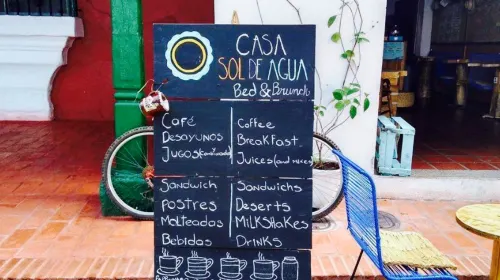 CASA
SOL DE AGUA
Bed & Brunch
Café
Desayunos
Jugos
Coffee
Breakfast
Juices
Sandwich
postres
Malteadas
Bebidas
Sandwichs
Deserts
Milkshakes
Drinks